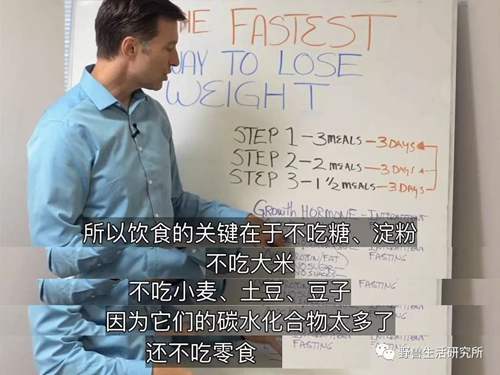 THE FASTEST
WAY TO LOSE
WEIGHT
STEP 1-3 MEALS-3 DAYS
STEP 2-2 MEALS-3 DAYS
STEP 3-1 1/2 MEALS-3 DAYS
GROWTH HORMONE - INTERMITTENT
所以饮食的关键在于不吃糖、淀粉
不吃大米
FASTING
不吃小麦、土豆、豆子
因为它们的碳水化合物太多了
还不吃零食
FASTING
野兽生活研究所